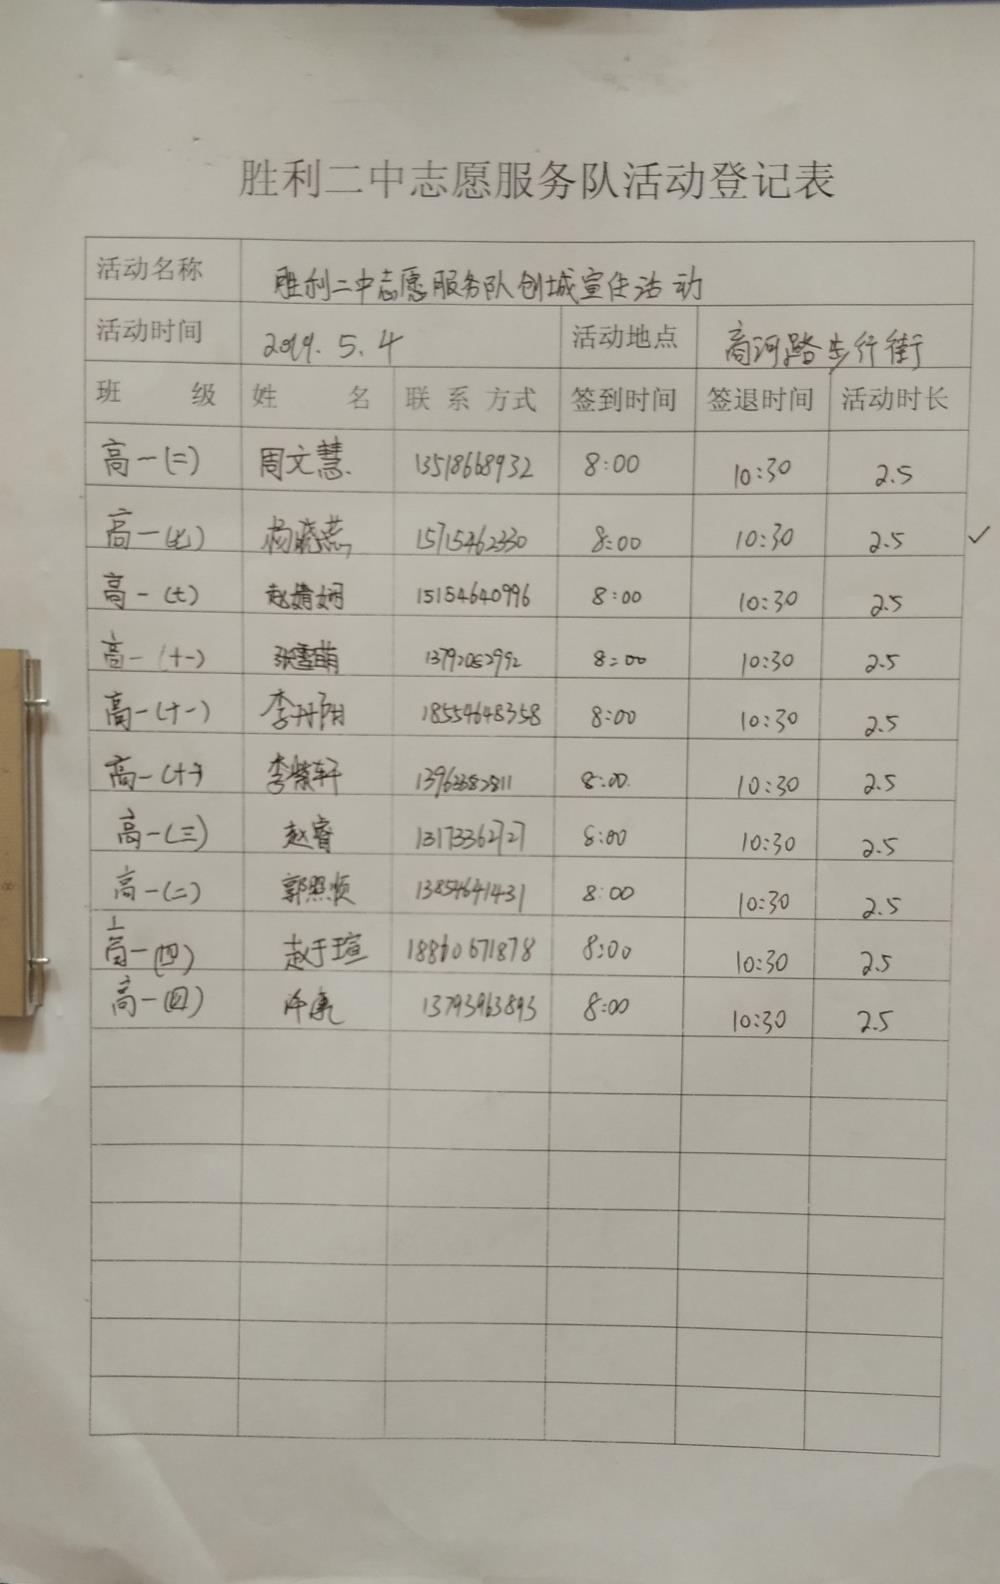 胜利二中志愿服务队活动登记表
活动名称 胜利二中志愿服务队创城宣传活动
活动时间 2019.5.4 活动地点 商河路步行街
班 级 姓 名 联系方式 签到时间 签退时间 活动时长
高一(二) 周文慧 13518668932 8:00 10:30 2.5
高一(七) 杨晓燕 15715462330 8:00 10:30 2.5 ✓
高一(七) 赵婧娴 15154640996 8:00 10:30 2.5
高一(十一) 张雪萌 13792082992 8:00 10:30 2.5
高一(十一) 李丹阳 18554648358 8:00 10:30 2.5
高一(十) 李紫轩 8:00 10:30 2.5
高一(三) 赵睿 13173362727 8:00 10:30 2.5
高一(二) 郭照顺 13854641431 8:00 10:30 2.5
高一(四) 赵于瑄 18860671878 8:00 10:30 2.5
高一(四) 许康 13793963893 8:00 10:30 2.5